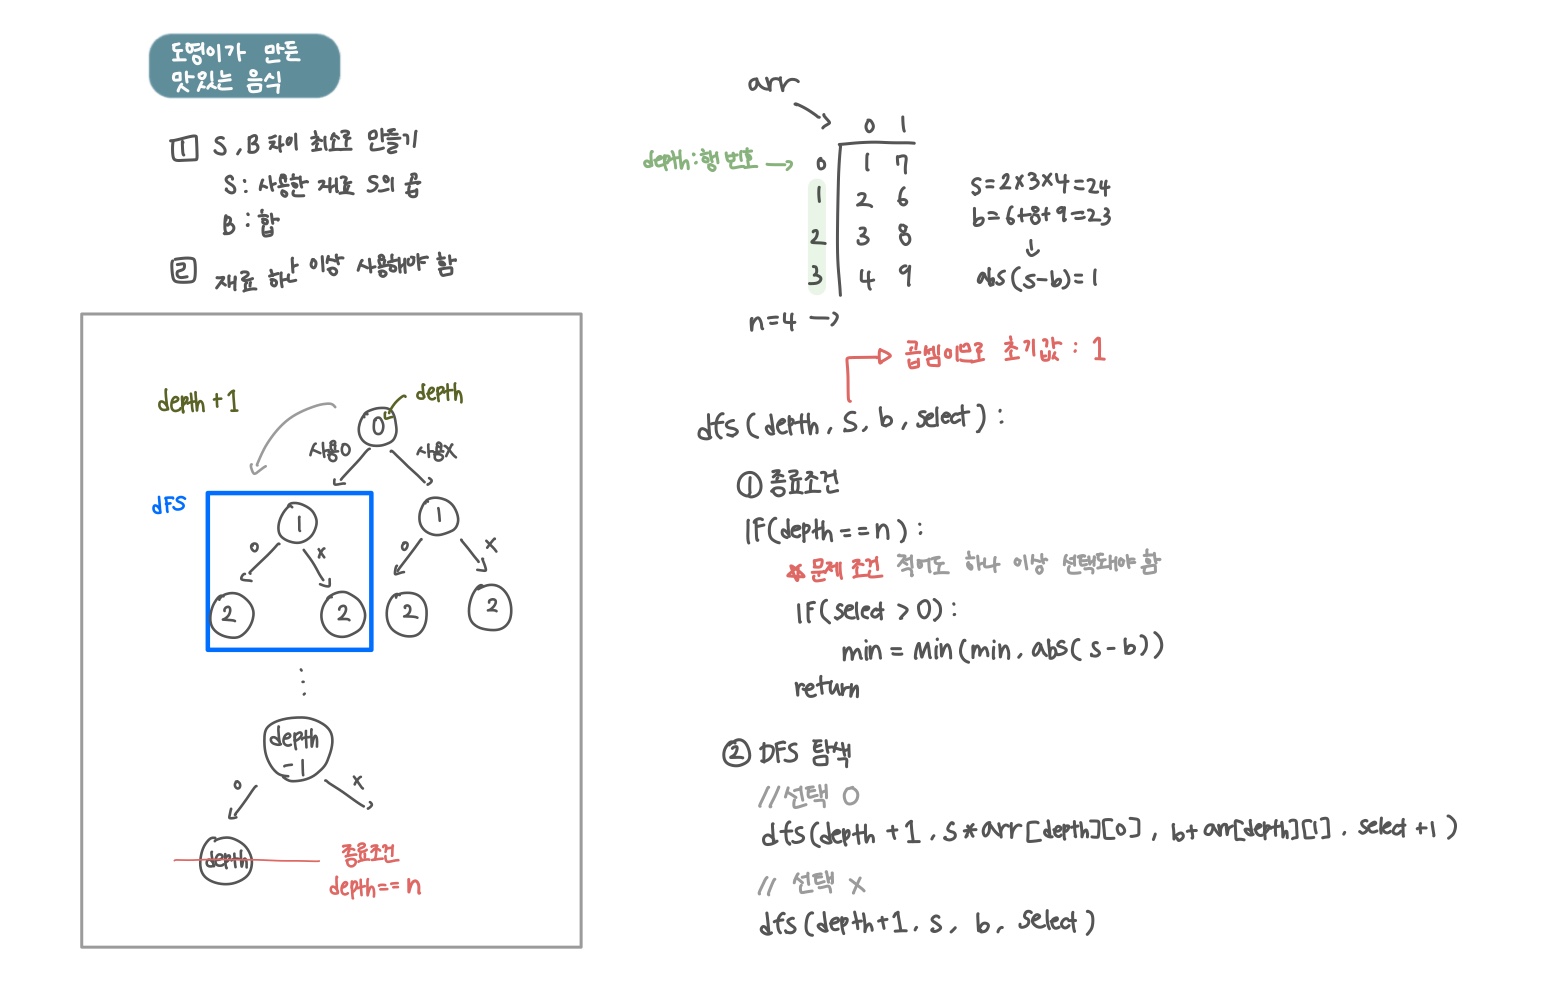 도영이가 만든
맛있는 음식
1 S, B 차이 최소로 만들기
S : 사용한 재료 S의 곱
B : 합
2 재료 하나 이상 사용해야 함
depth + 1
depth
0
사용O
사용X
dFS
1
1
O
X
O
X
2
2
2
2
⋮
depth
-1
O
X
depth
종료조건
depth == n
arr
0 1
depth : 행 번호 → 0 1 7
1 2 6
2 3 8
3 4 9
n=4 →
S = 2×3×4 = 24
b = 6+8+9 = 23
↓
abs(s-b) = 1
곱셈이므로 초기값 : 1
dfs(depth, S, b, select) :
① 종료조건
IF(depth == n) :
☆ 문제 조건 적어도 하나 이상 선택돼야 함
IF(select > 0) :
min = Min(min, abs(s-b))
return
② DFS 탐색
// 선택 O
dfs(depth +1, S*arr[depth][0], b+arr[depth][1], select +1)
// 선택 X
dfs(depth+1, S, b, Select)